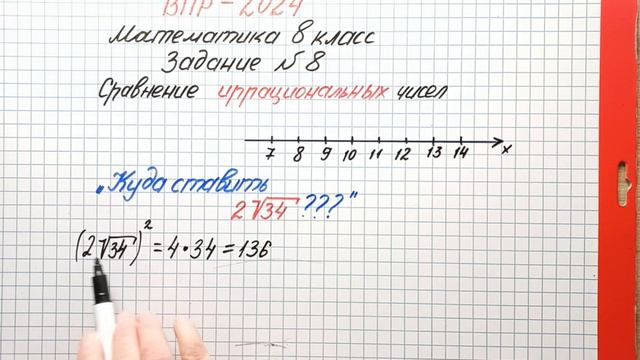 ВПР - 2024
Математика 8 класс
Задание №8
Сравнение иррациональных чисел
7 8 9 10 11 12 13 14 x
„Куда ставить
2√34 ???"
(2√34)² = 4·34 = 136